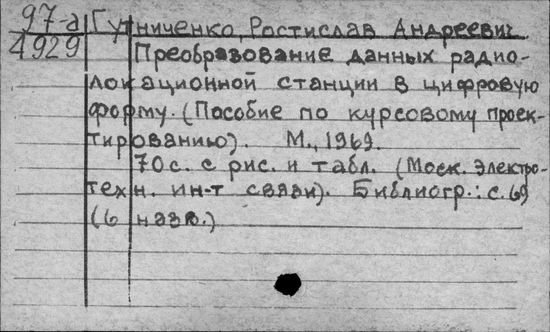 97-а Гутниченко, Ростислав Андреевич.
4929 Преобразование данных радио-
локационной станции в цифровую
форму. (Пособие по курсовому проек-
тированию). М., 1969.
70 с. с рис. и табл. (Моск. электро-
техн. ин-т связи). Библиогр.: с. 69
(6 назв.)